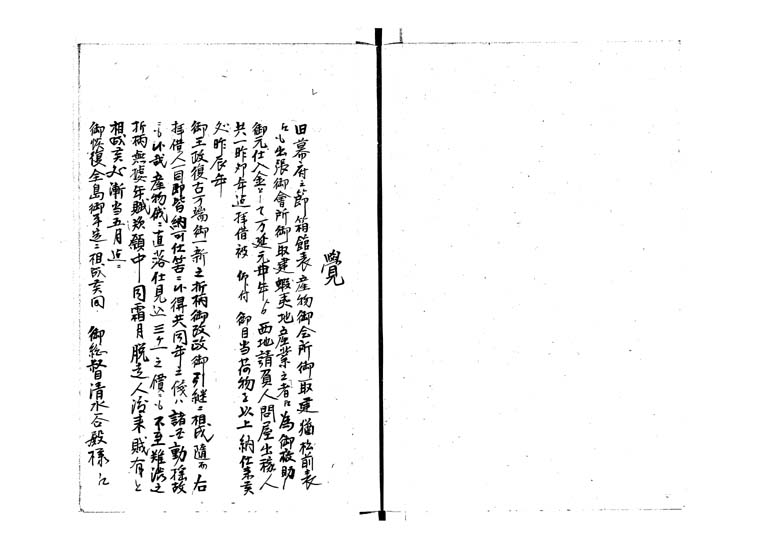 覺
旧幕府之節箱館表産物御会所御取建猶松前表
江も出張御會所御取建蝦夷地産業之者江為御救助
御元仕入金として万延元申年ゟ西地請負人問屋出稼人
共一昨卯年迄拝借被 仰付 御目当荷物を以上納仕来
処昨辰年
御王政復古万端御一新之折柄御改政御引継ニ相成随而右
拝借人一同即皆納可仕筈ニ候得共同年之儀ハ諸国動揺故
産物俄ニ直落仕見込三ケ一之價ニも不至難渋之
折柄無據年賦歎願中同霜月脱走人渡来賊有と
相成 漸当五月迄ニ
御恢復全島御平定ニ相成 同 御総督清水谷殿様江